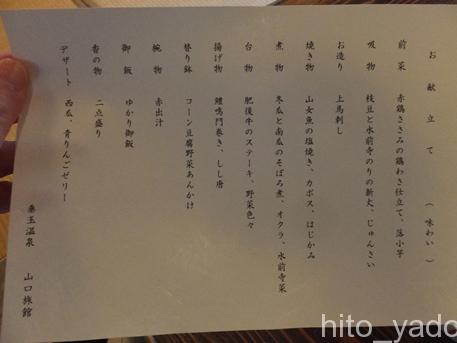 お献立て （味わい）
前菜 赤鶏ささみの鶏わさ仕立て、落小芋
吸物 枝豆と水前寺のりの新丈、じゅんさい
お造り 上馬刺し
焼き物 山女魚の塩焼き、カボス、はじかみ
煮物 冬瓜と南瓜のそぼろ煮、オクラ、水前寺菜
台物 肥後牛のステーキ、野菜色々
揚げ物 鱧鳴門巻き、しし唐
替り鉢 コーン豆腐野菜あんかけ
椀物 赤出汁
御飯 ゆかり御飯
香の物 二点盛り
デザート 西瓜、青りんごゼリー
垂玉温泉 山口旅館
hito_yado